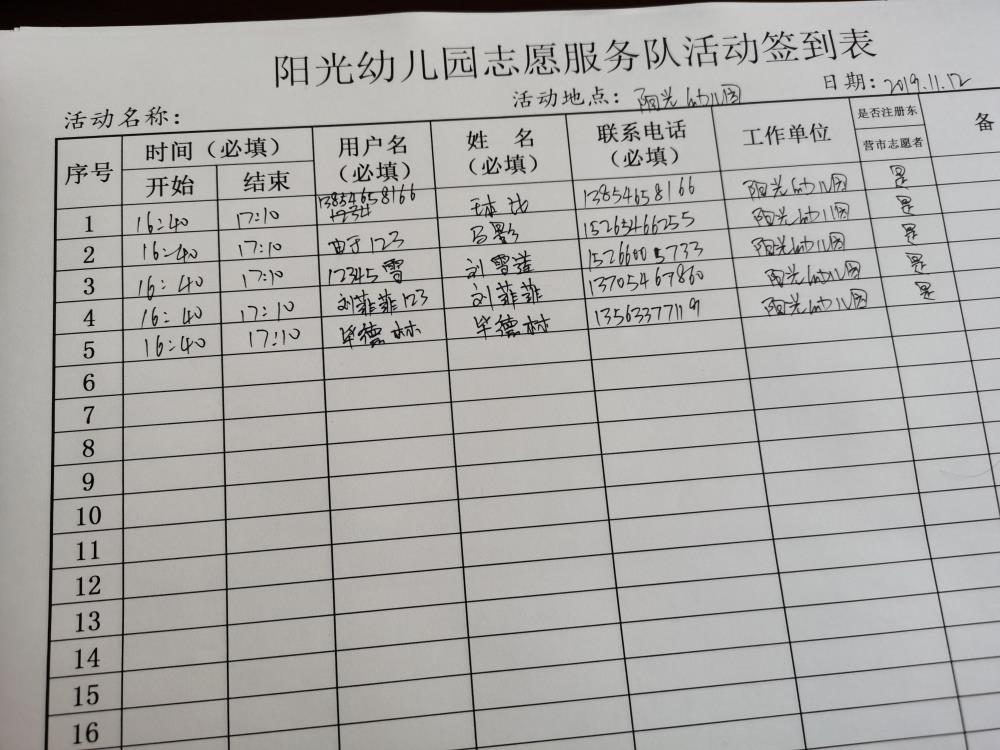 阳光幼儿园志愿服务队活动签到表
活动名称： 活动地点：阳光幼儿园 日期：2019.11.12
序号 时间（必填） 用户名（必填） 姓 名（必填） 联系电话（必填） 工作单位 是否注册东营市志愿者 备
开始 结束
1 16:40 17:10 13854658166 13854658166 阳光幼儿园 是
2 16:40 17:10 由于123 马影 15263466255 阳光幼儿园 是
3 16:40 17:10 12345雪 刘雪莲 15266005733 阳光幼儿园 是
4 16:40 17:10 刘菲菲123 刘菲菲 13705467860 阳光幼儿园 是
5 16:40 17:10 毕德林 毕德林 13563377119 阳光幼儿园 是
6
7
8
9
10
11
12
13
14
15
16